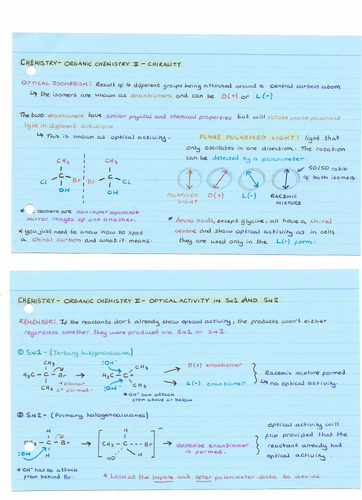 CHEMISTRY- ORGANIC CHEMISTRY II - CHIRALITY
OPTICAL ISOMERISM: Result of 4 different groups being attached around a central carbon atom
↳ the isomers are known as enantiomers and can be D(+) or L(-)
The two enantiomers have similar physical and chemical properties but will rotate plane polarised
light in different directions
↳ This is known as optical activity.
PLANE POLARISED LIGHT: light that
only oscillates in one direction. The rotation
can be detected by a polarimeter:
CH₃ CH₃
C C
Cl Br Br Cl
OH OH
50/50 ratio
of both isomers
POLARISED
LIGHT
D(+)
L(-)
RACEMIC
MIXTURE
* isomers are non-superimposable
mirror images of one another.
* you just need to know how to spot
a chiral carbon and what it means.
* Amino acids, except glycine, all have a chiral
centre and show optical activity as in cells
they are used only in the L(-) form.
CHEMISTRY- ORGANIC CHEMISTRY II- OPTICAL ACTIVITY IN SN1 AND SN2
REMEMBER: If the reactants don't already show optical activity, the products won't either
regardless whether they were produced via SN1 or SN2
① SN1 - (Tertiary halogenoalkanes)
CH₃
H₃C - C - Br
CH₃
* planar
C⁺ formed.
:OH⁻
CH₃
H₃C - C
CH₃
:OH⁻
* OH⁻ can attack
from above or below
D(+) enantiomer
L(-) enantiomer
Racemic mixture formed
↳ no optical activity.
② SN2 - (Primary halogenoalkanes)
H
CH₃ - C - Br
H
:OH⁻
* OH⁻ has to attack
from behind Br.
H
CH₃ C Br
HO H
opposite enantiomer
is formed.
optical activity will
flip provided that the
reactant already had
optical activity.
* Look at the before and after polarimeter data to decide.